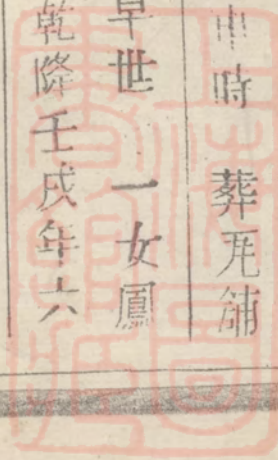 申時 葬瓦鋪
早世 一女鳳
乾隆壬戌年六